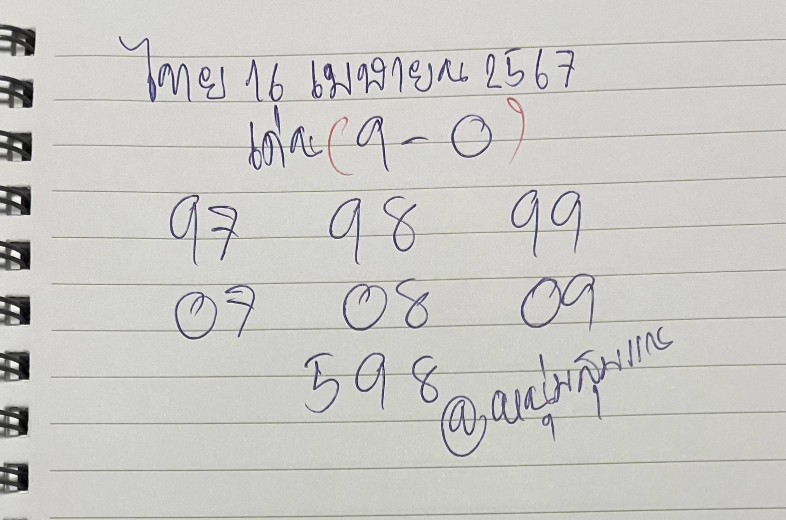 ไทย 16 เมษายน 2567
เด่น (9-0)
97 98 99
07 08 09
598
@